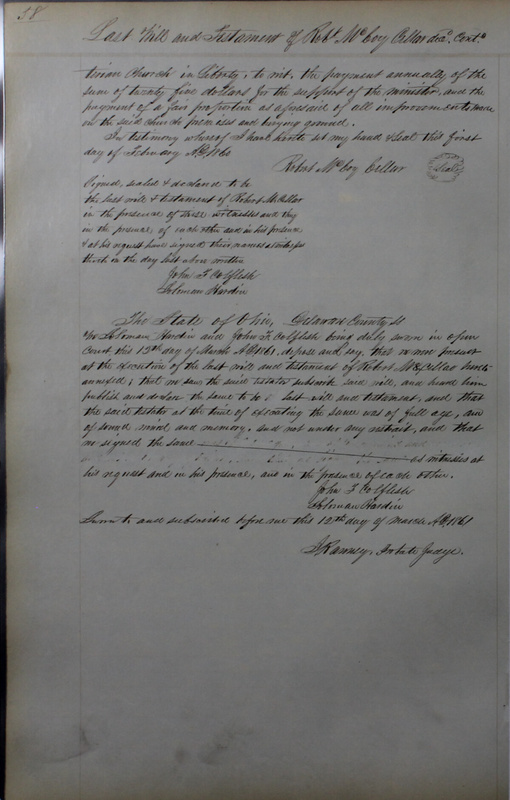 58
Last Will and Testament of Robt McCoy Cellar decd. Contd.
terian Church in Liberty, to wit, the payment annually of the
sum of twenty five dollars for the support of the minister, and the
payment of a fair proportion as aforesaid of all improvements
on the said church premises and burying ground.
In testimony whereof I have hereto set my hand & seal this first
day of February AD 1860
Robert McCoy Cellar
Seal
Signed, sealed & declared to be
the last will & testament of Robert M. Cellar
in the presence of these witnesses and they
in the presence of each other and in his presence
& at his request have signed their names as witnesses
thereto in the day last above written
John F Colflesh
Soloman Hardin
The State of Ohio, Delaware County ss
We Soloman Hardin and John F. Colflesh being duly sworn in open
Court this 12th day of March AD 1861. depose and say, that we were present
at the execution of the last will and testament of Robert McCellar hereto
annexed; that we saw the said testator subscribe said will, and heard him
publish and declare the same to be last will and testament, and that
the said testator at the time of executing the same was of full age, and
of sound mind and memory, and not under any restraint, and that
we signed the same
as witnesses at
his request and in his presence, and in the presence of each other.
John F Colflesh
Soloman Hardin
Sworn to and subscribed before me this 12th day of March AD 1861
Ranney, Probate Judge.